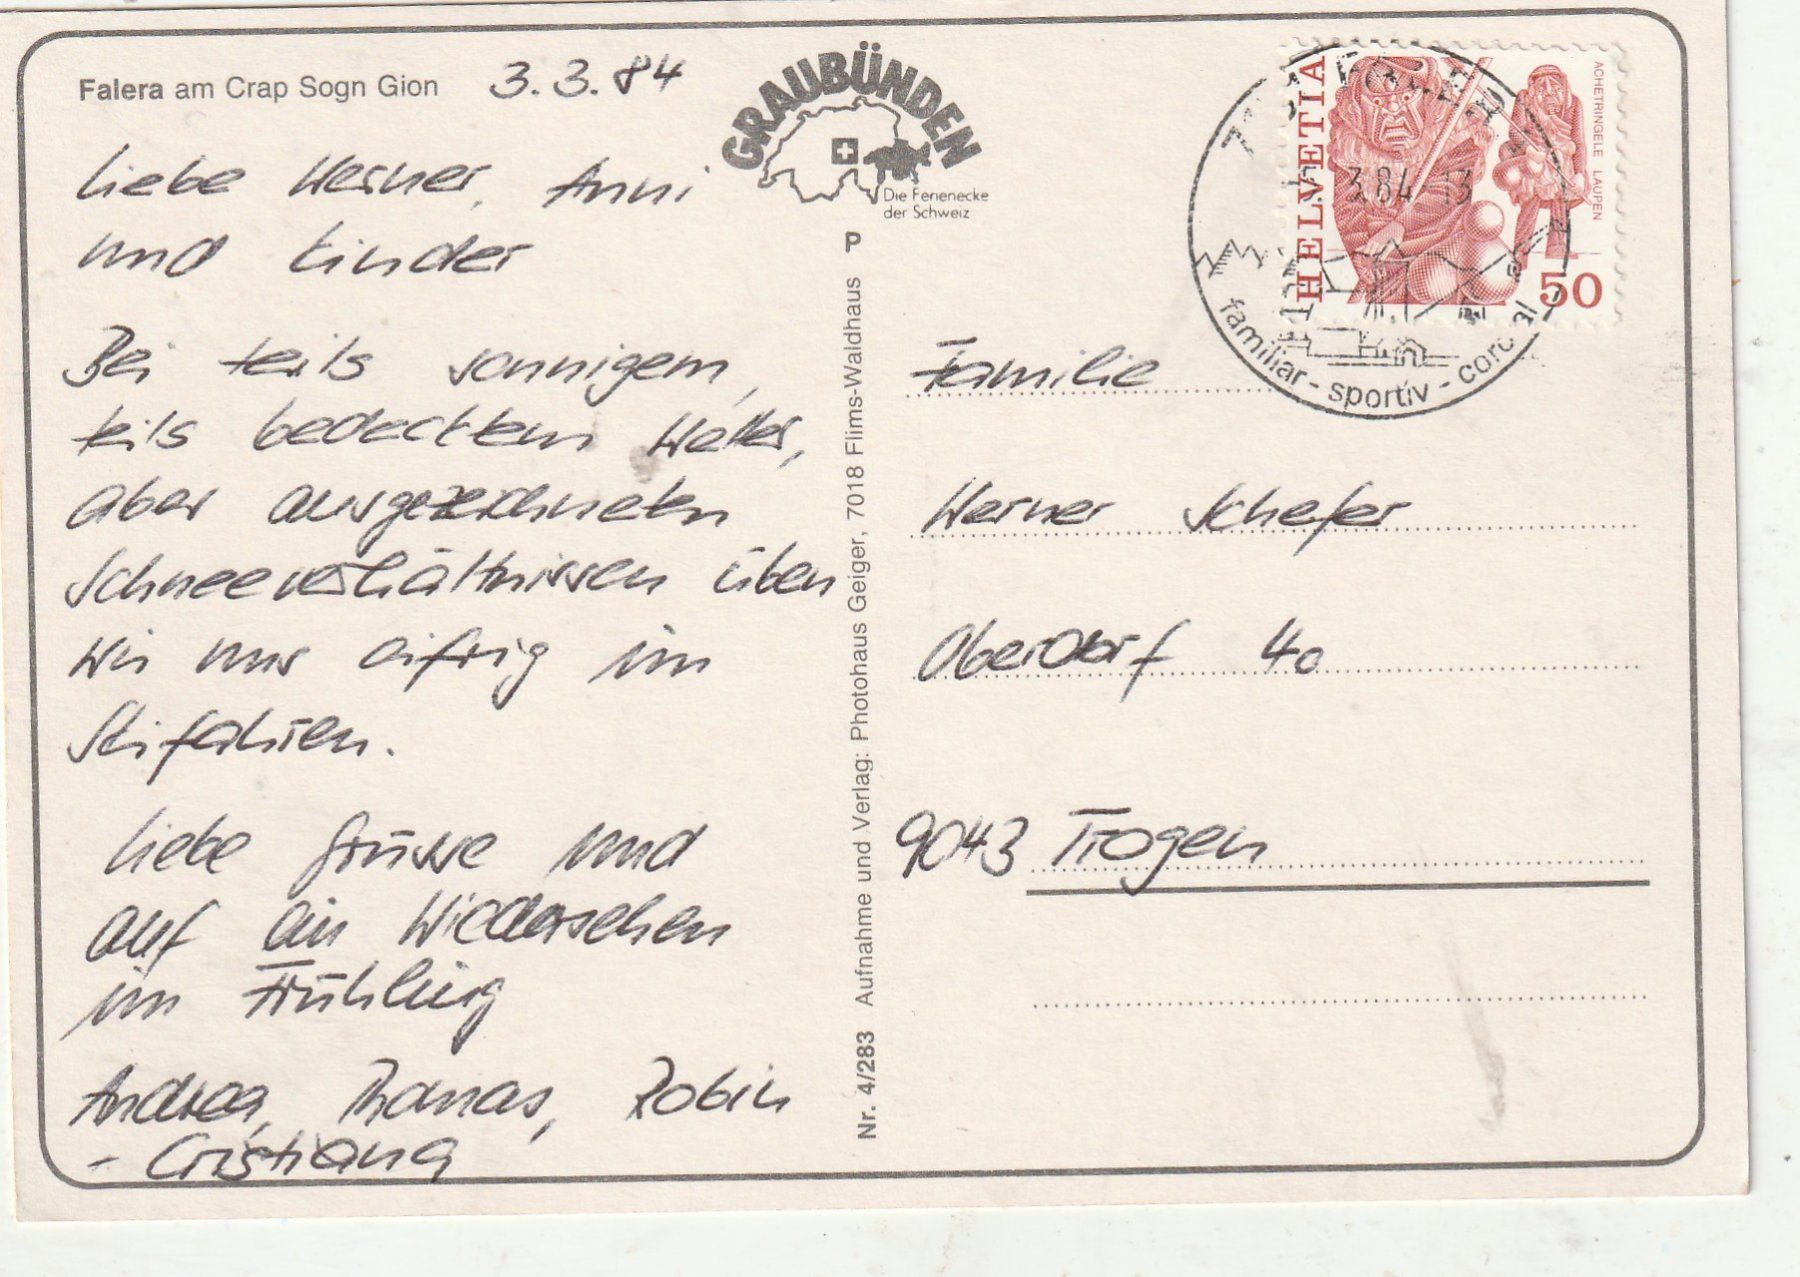 Falera am Crap Sogn Gion 3.3.84
Liebe Werner, Anni
und Kinder
Bei teils sonnigem,
teils bedecktem Wetter,
aber ausgezeichneten
Schneeverhältnissen üben
wir uns eifrig im
Skifahren.
Liebe Grüsse und
auf ein Wiedersehen
im Frühling
Andrea, Thomas, Robin
- Cristiana
GRAUBÜNDEN
Die Ferienecke
der Schweiz
P
Nr. 4/283 Aufnahme und Verlag: Photohaus Geiger, 7018 Flims-Waldhaus
HELVETIA
ACHETRINGELE LAUPEN
50
3.84-13
familiar - sportiv -
Familie
Werner Schefer
Oberdorf 40
9043 Trogen